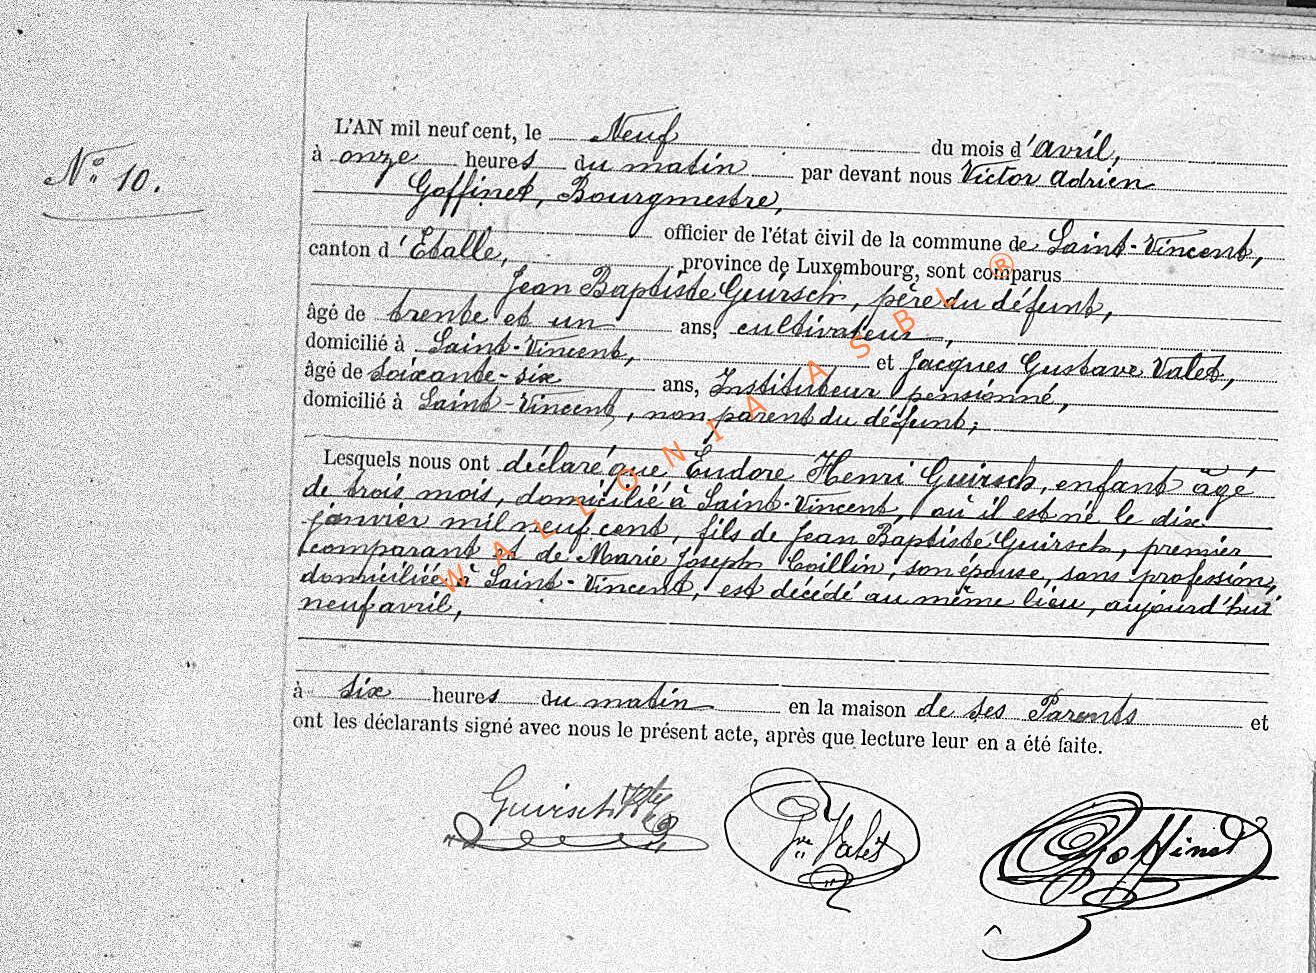 N° 10.
L'AN mil neuf cent, le Neuf du mois d'avril,
à onze heures du matin par devant nous Victor Adrien
Goffinet, Bourgmestre,
officier de l'état civil de la commune de Saint-Vincent,
canton d'Etalle, province de Luxembourg, sont comparus
Jean Baptiste Guirsch, père du défunt,
âgé de trente et un ans, cultivateur,
domicilié à Saint-Vincent, et Jacques Gustave Valet,
âgé de soixante-six ans, Instituteur pensionné,
domicilié à Saint-Vincent, non parent du défunt;
Lesquels nous ont déclaré que Eudore Henri Guirsch, enfant âgé
de trois mois, domicilié à Saint-Vincent, où il est né le dix
janvier mil neuf cent, fils de Jean Baptiste Guirsch, premier
comparant et de Marie Joseph Collin, son épouse, sans profession,
domiciliée à Saint-Vincent, est décédé au même lieu, aujourd'hui
neuf avril,
à six heures du matin en la maison de ses Parents et
ont les déclarants signé avec nous le présent acte, après que lecture leur en a été faite.
Guirsch Bte Valet Goffinet
WALLONIA ASBL ®